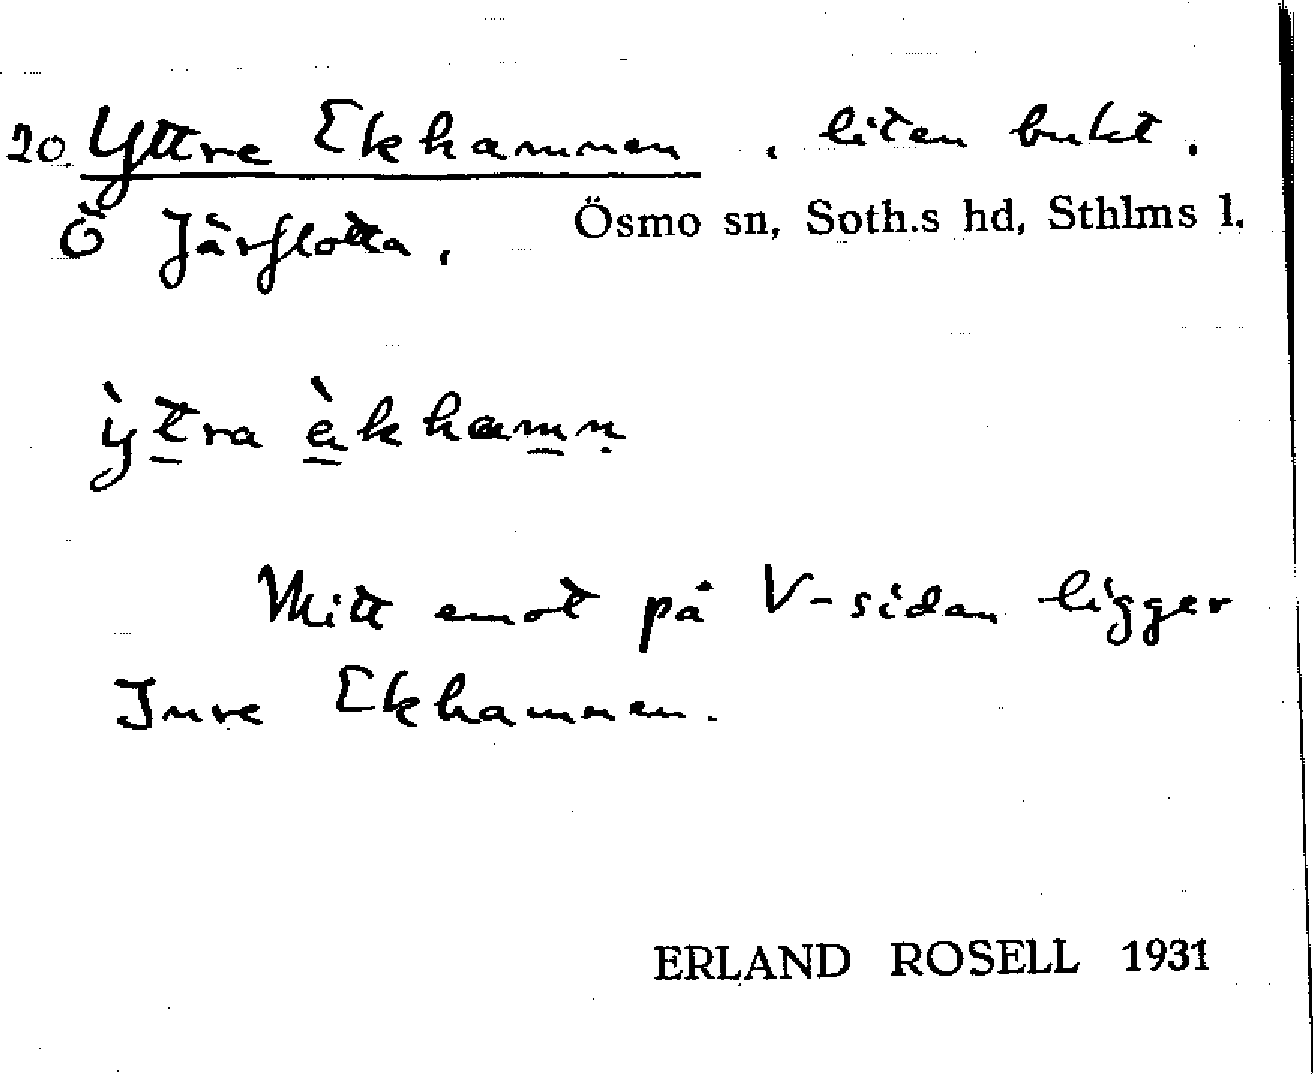 20 Yttre Ekhamnen, liten bukt.
Ö Järflotta. Ösmo sn, Soth.s hd, Sthlms l.
ỳt̠ra è̠khamṇ
Mitt emot på V-sidan ligger
Inre Ekhamnen.
ERLAND ROSELL 1931